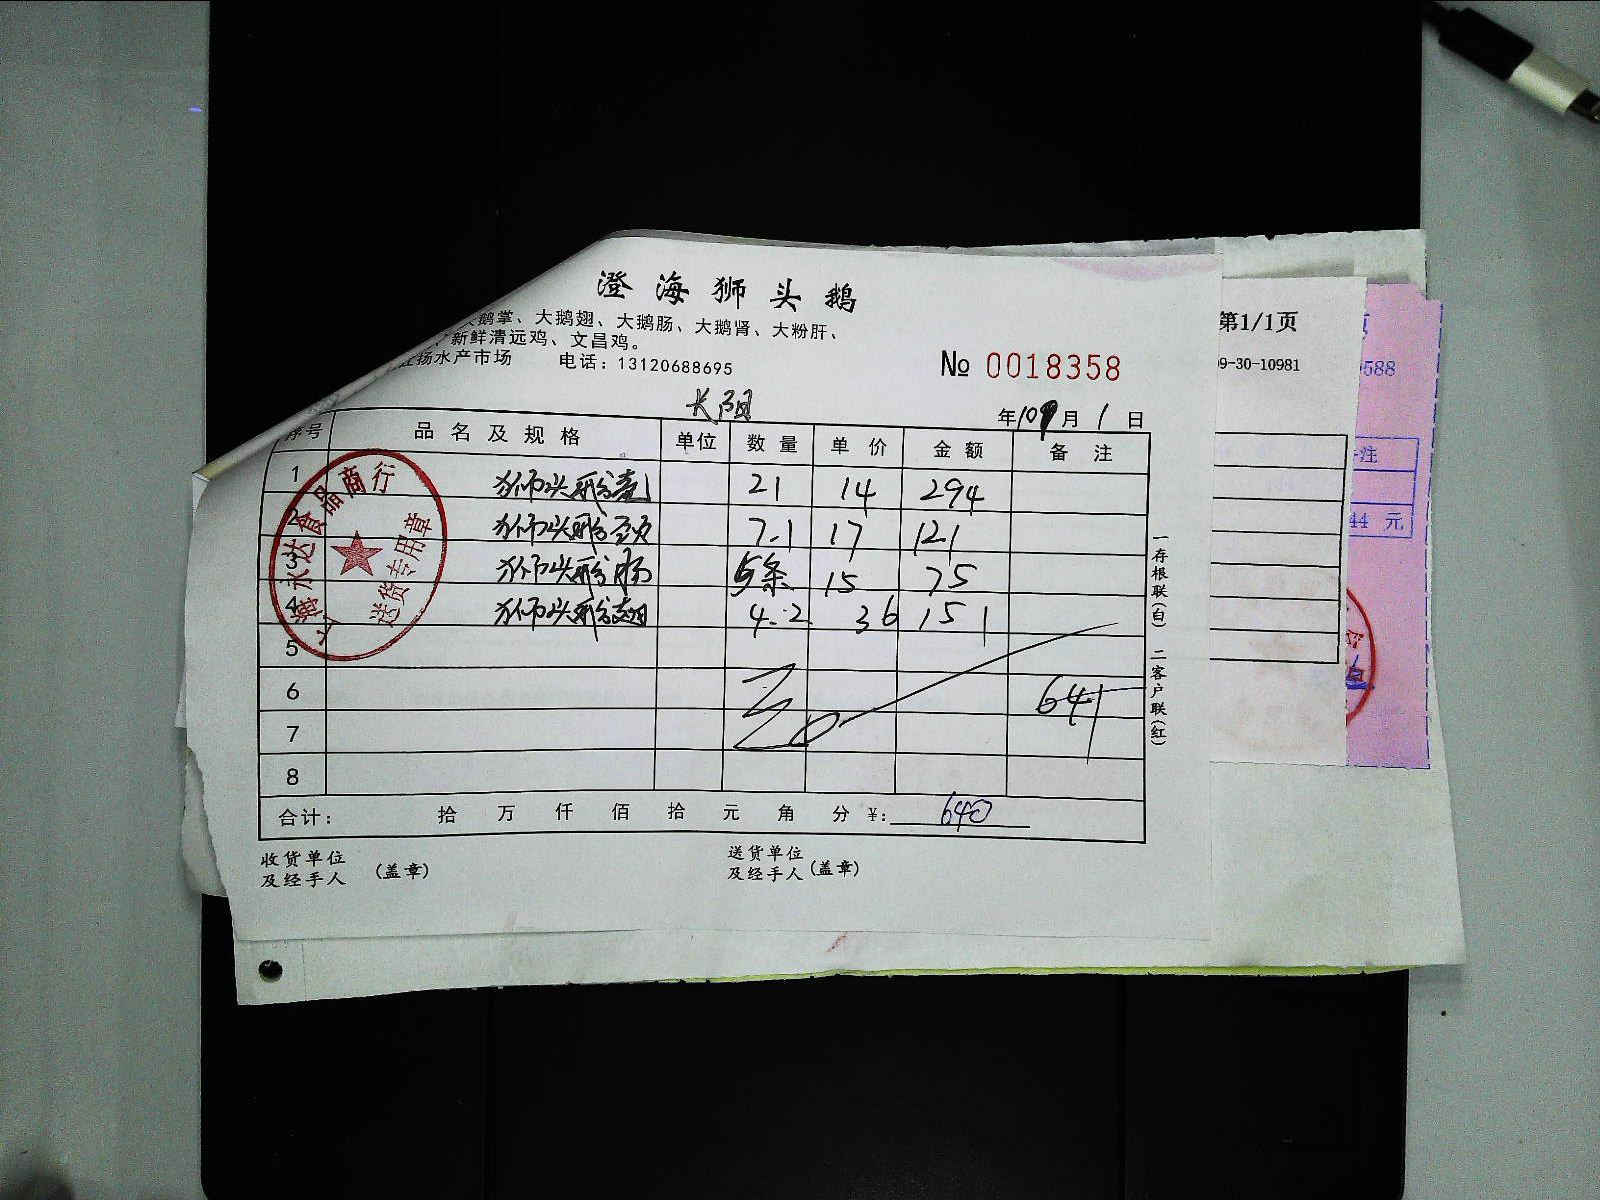 澄海狮头鹅
大鹅掌、大鹅翅、大鹅肠、大鹅肾、大粉肝、
新鲜清远鸡、文昌鸡。
江杨水产市场 电话：13120688695
№ 0018358
长阳
年 10 月 1 日
序号 品名及规格 单位 数量 单价 金额 备注
1 狮头 21 14 294
2 狮头 7.1 17 121
3 狮头 肠 5条 15 75
4 狮头 翅 4.2 36 151
5
6 641
7
8
合计： 拾 万 仟 佰 拾 元 角 分 ¥： 640
收货单位
及经手人 （盖章）
送货单位
及经手人 （盖章）
一存根联（白） 二客户联（红）
上海永达食品商行
送货专用章
第1/1页
09-30-10981
页
0588
注
44 元